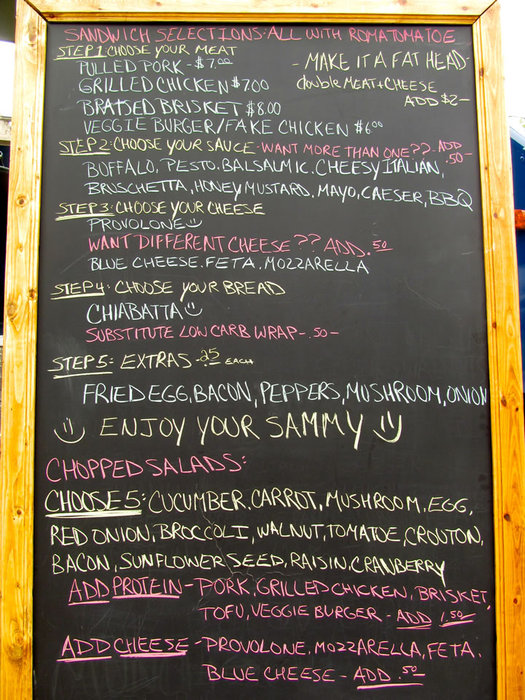 SANDWICH SELECTIONS-ALL WITH ROMATOMATOE
STEP 1 CHOOSE YOUR MEAT
PULLED PORK - $7.00
GRILLED CHICKEN $7.00
BRAISED BRISKET $8.00
VEGGIE BURGER/FAKE CHICKEN $6.00
- MAKE IT A FAT HEAD-
double MEAT + CHEESE
ADD $2-
STEP 2: CHOOSE YOUR SAUCE - WANT MORE THAN ONE?? ADD .50-
BUFFALO, PESTO. BALSALMIC. CHEESY ITALIAN,
BRUSCHETTA, HONEY MUSTARD, MAYO, CAESER, BBQ
STEP 3: CHOOSE YOUR CHEESE
PROVOLONE
WANT DIFFERENT CHEESE?? ADD .50-
BLUE CHEESE. FETA. MOZZARELLA
STEP 4: CHOOSE YOUR BREAD
CHIABATTA
SUBSTITUTE LOW CARB WRAP - .50-
STEP 5: EXTRAS - .25 EACH
FRIED EGG, BACON, PEPPERS, MUSHROOM, ONION
ENJOY YOUR SAMMY
CHOPPED SALADS:
CHOOSE 5: CUCUMBER. CARROT, MUSHROOM, EGG,
RED ONION, BROCCOLI, WALNUT, TOMATOE, CROUTON,
BACON, SUNFLOWER SEED, RAISIN, CRANBERRY
ADD PROTEIN - PORK, GRILLED CHICKEN, BRISKET,
TOFU, VEGGIE BURGER - ADD 1.50
ADD CHEESE - PROVOLONE, MOZZARELLA, FETA.
BLUE CHEESE - ADD .50